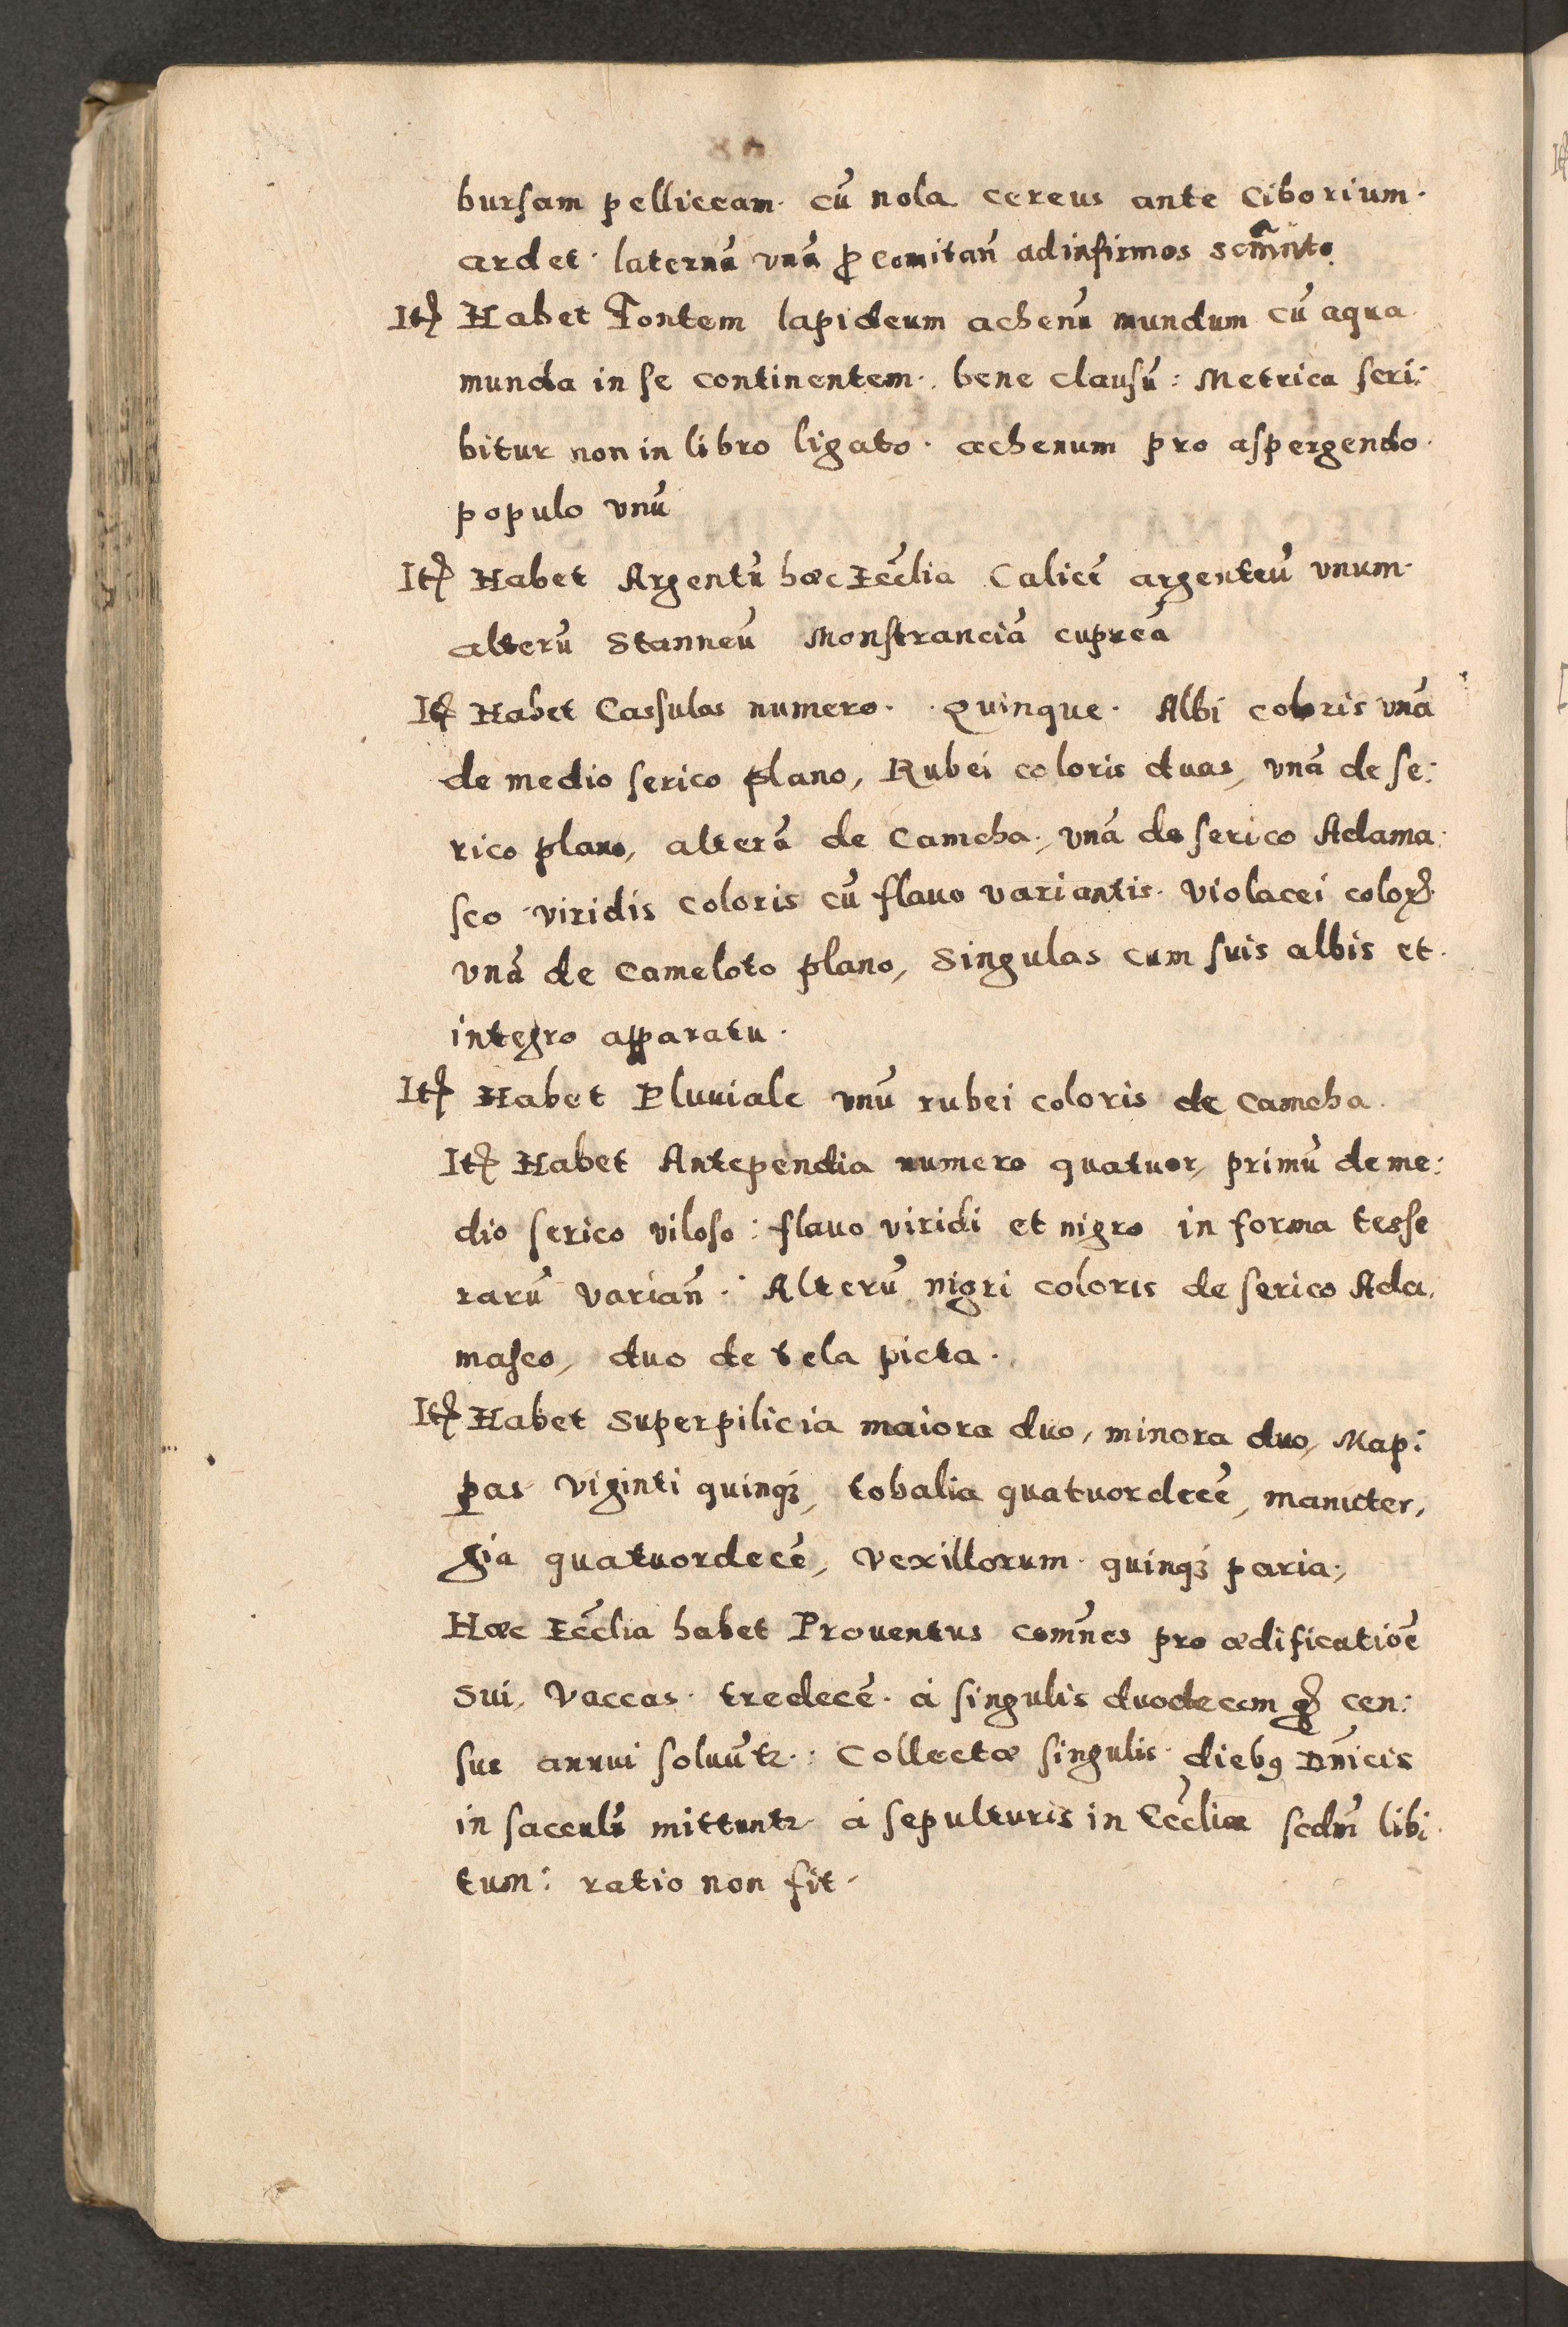 bursam pelliceam. cū nola cereus ante Ciborium.
ardet. laternā vnā ꝓ comitan̄ ad infirmos
Itē Habet Fontem lapideum achenū mundum cū aqua
munda in se continentem. bene clausū: Metrica scri:
bitur non in libro ligato. achenum pro aspergendo.
populo vnū
Itē Habet Argentū hæc Eccl̄ia Calicē argenteū vnum.
alterū Stanneū Monstranciā cupreā
Itē Habet Cassulas numero. Quinque. Albi coloris vnā
de medio serico plano, Rubei coloris duas, vnā de se:
rico plano, alterā de Camcha, vnā de serico Adama.
sco viridis coloris cū flauo variantis. violacei coloꝝ
vnā de Cameloto plano, Singulas cum suis albis et.
integro apparatu.
Itē Habet Pluuiale vnū rubei coloris de Camcha.
Itē Habet Antependia numero quatuor, primū de me:
dio serico viloso: flauo viridi et nigro in forma tesse
rarū varian̄. Alterū nigri coloris de serico Ada,
masco, duo de tela picta.
Itē Habet Superpilicia maiora duo, minora duo, Map:
pas viginti quinqꝫ, tobalia quatuordecē, manuter,
gia quatuordecē, vexillorum quinqꝫ paria,
Hæc Eccl̄ia habet Prouentus com̄nes pro ædificatiōe
Sui, vaccas. tredecē. à singulis duodecem gꝛ cen:
sus annui soluūtꝛ: Collectæ singulis diebꝰ Dn̄icis
in sacculū mittuntꝛ. à sepulturis in Eccl̄ia scdm̄ libi.
tum: ratio non fit.